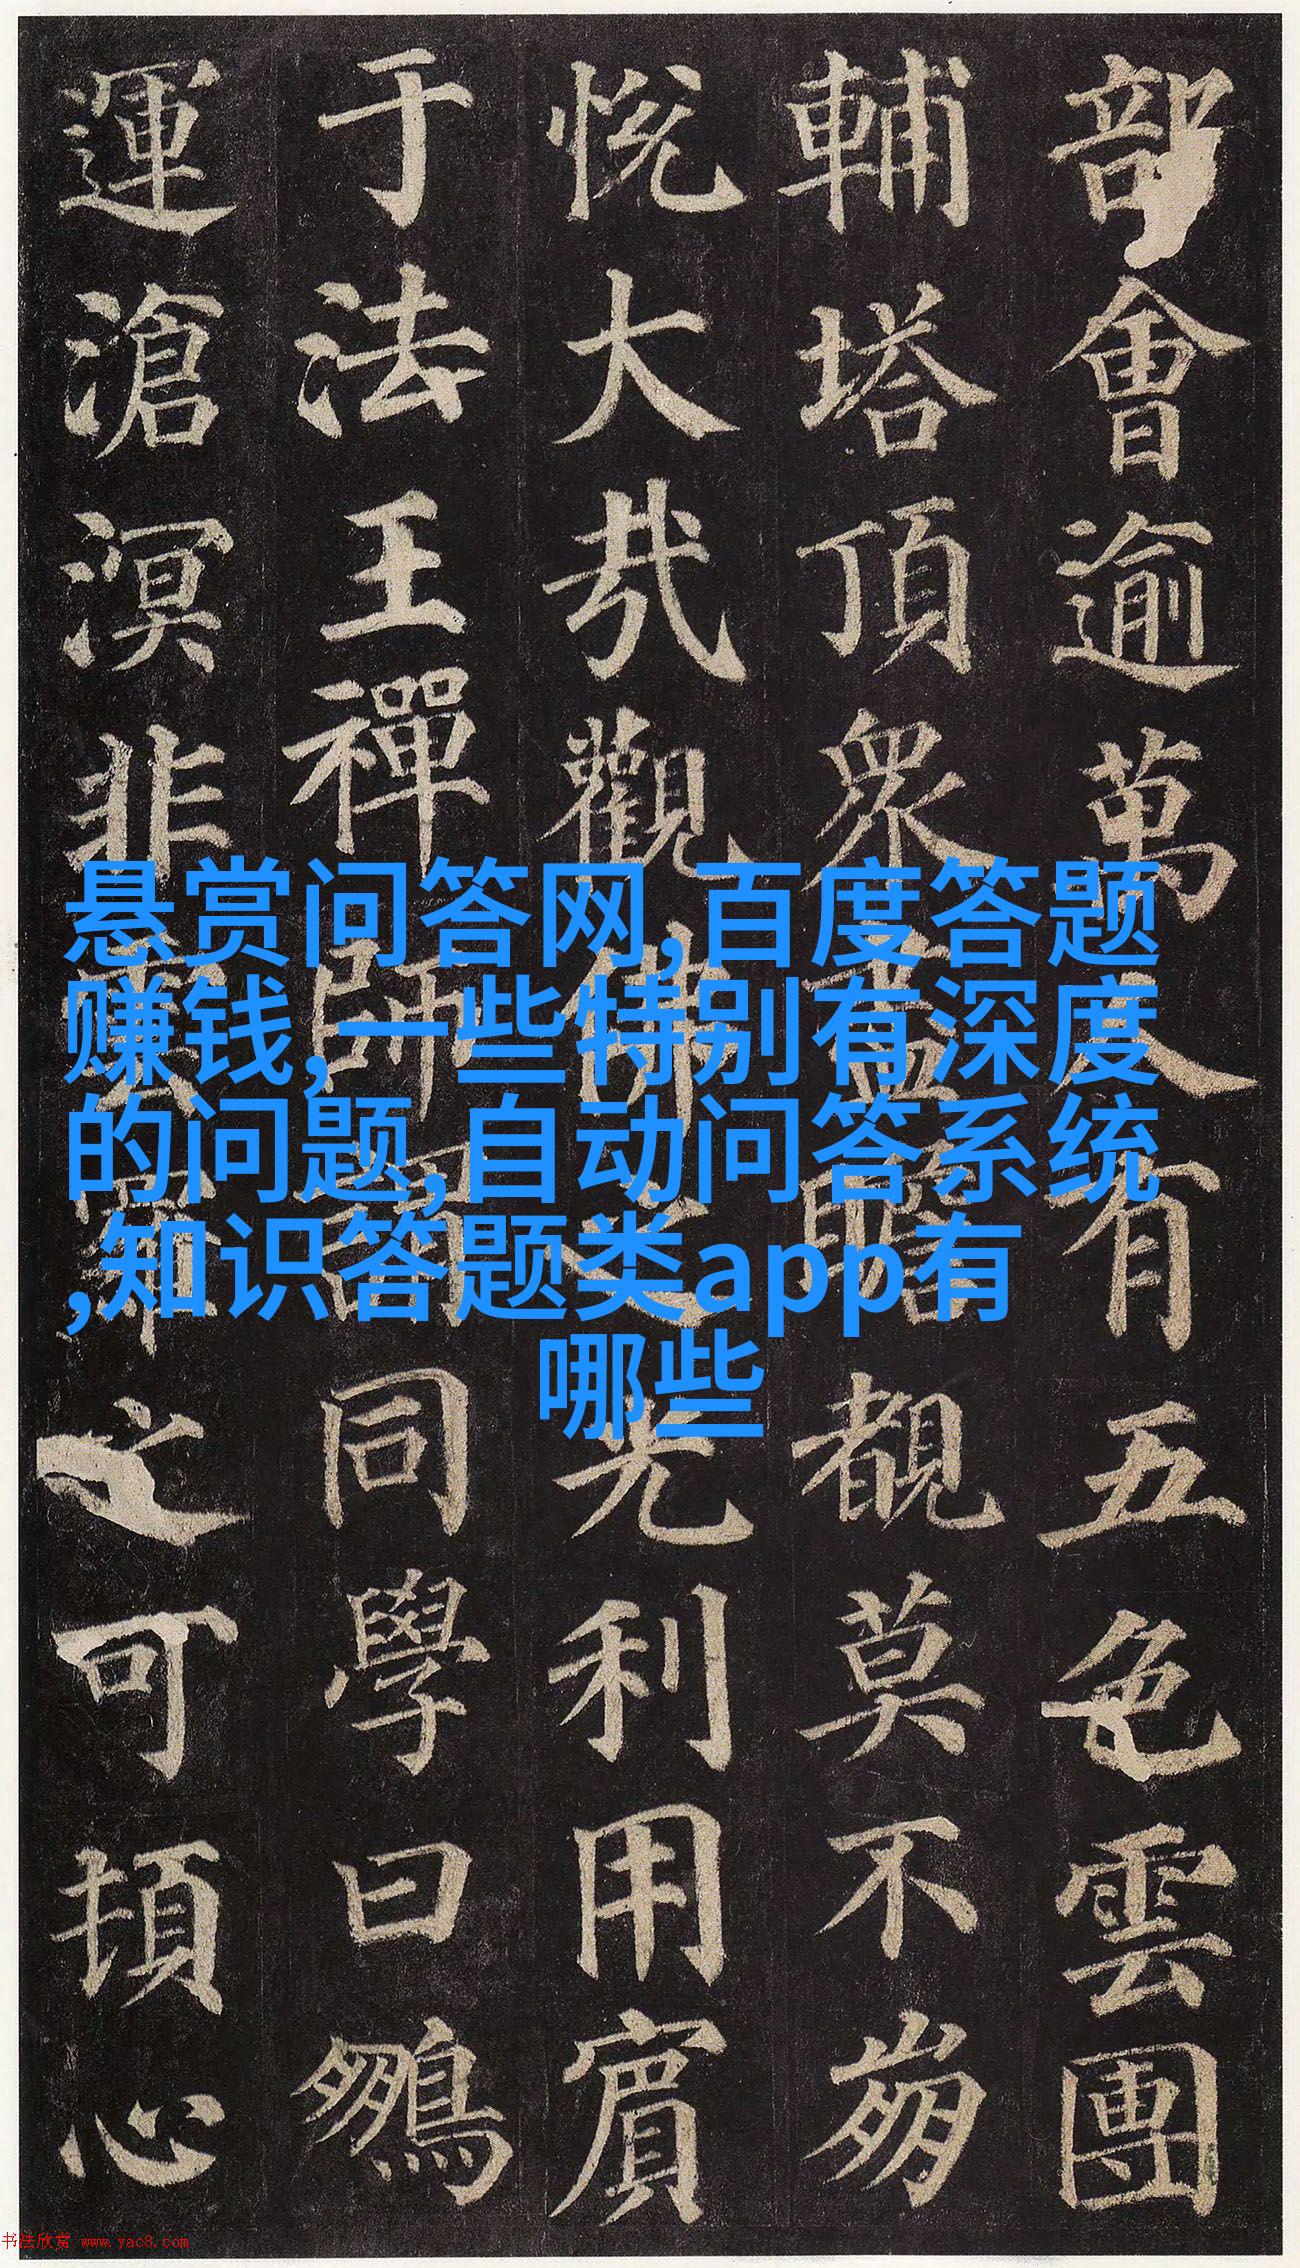 部會逾萬人有五色雲團
輔塔頂衆盡瞻覩莫不崩
悅大哉觀佛之光利用賓
于法王禪師謂同學曰鵬
運滄溟非雲羅之可頓心
悬赏问答网,百度答题
赚钱,一些特别有深度
的问题,自动问答系统
,知识答题类app有
哪些
书法欣赏 www.yac8.com